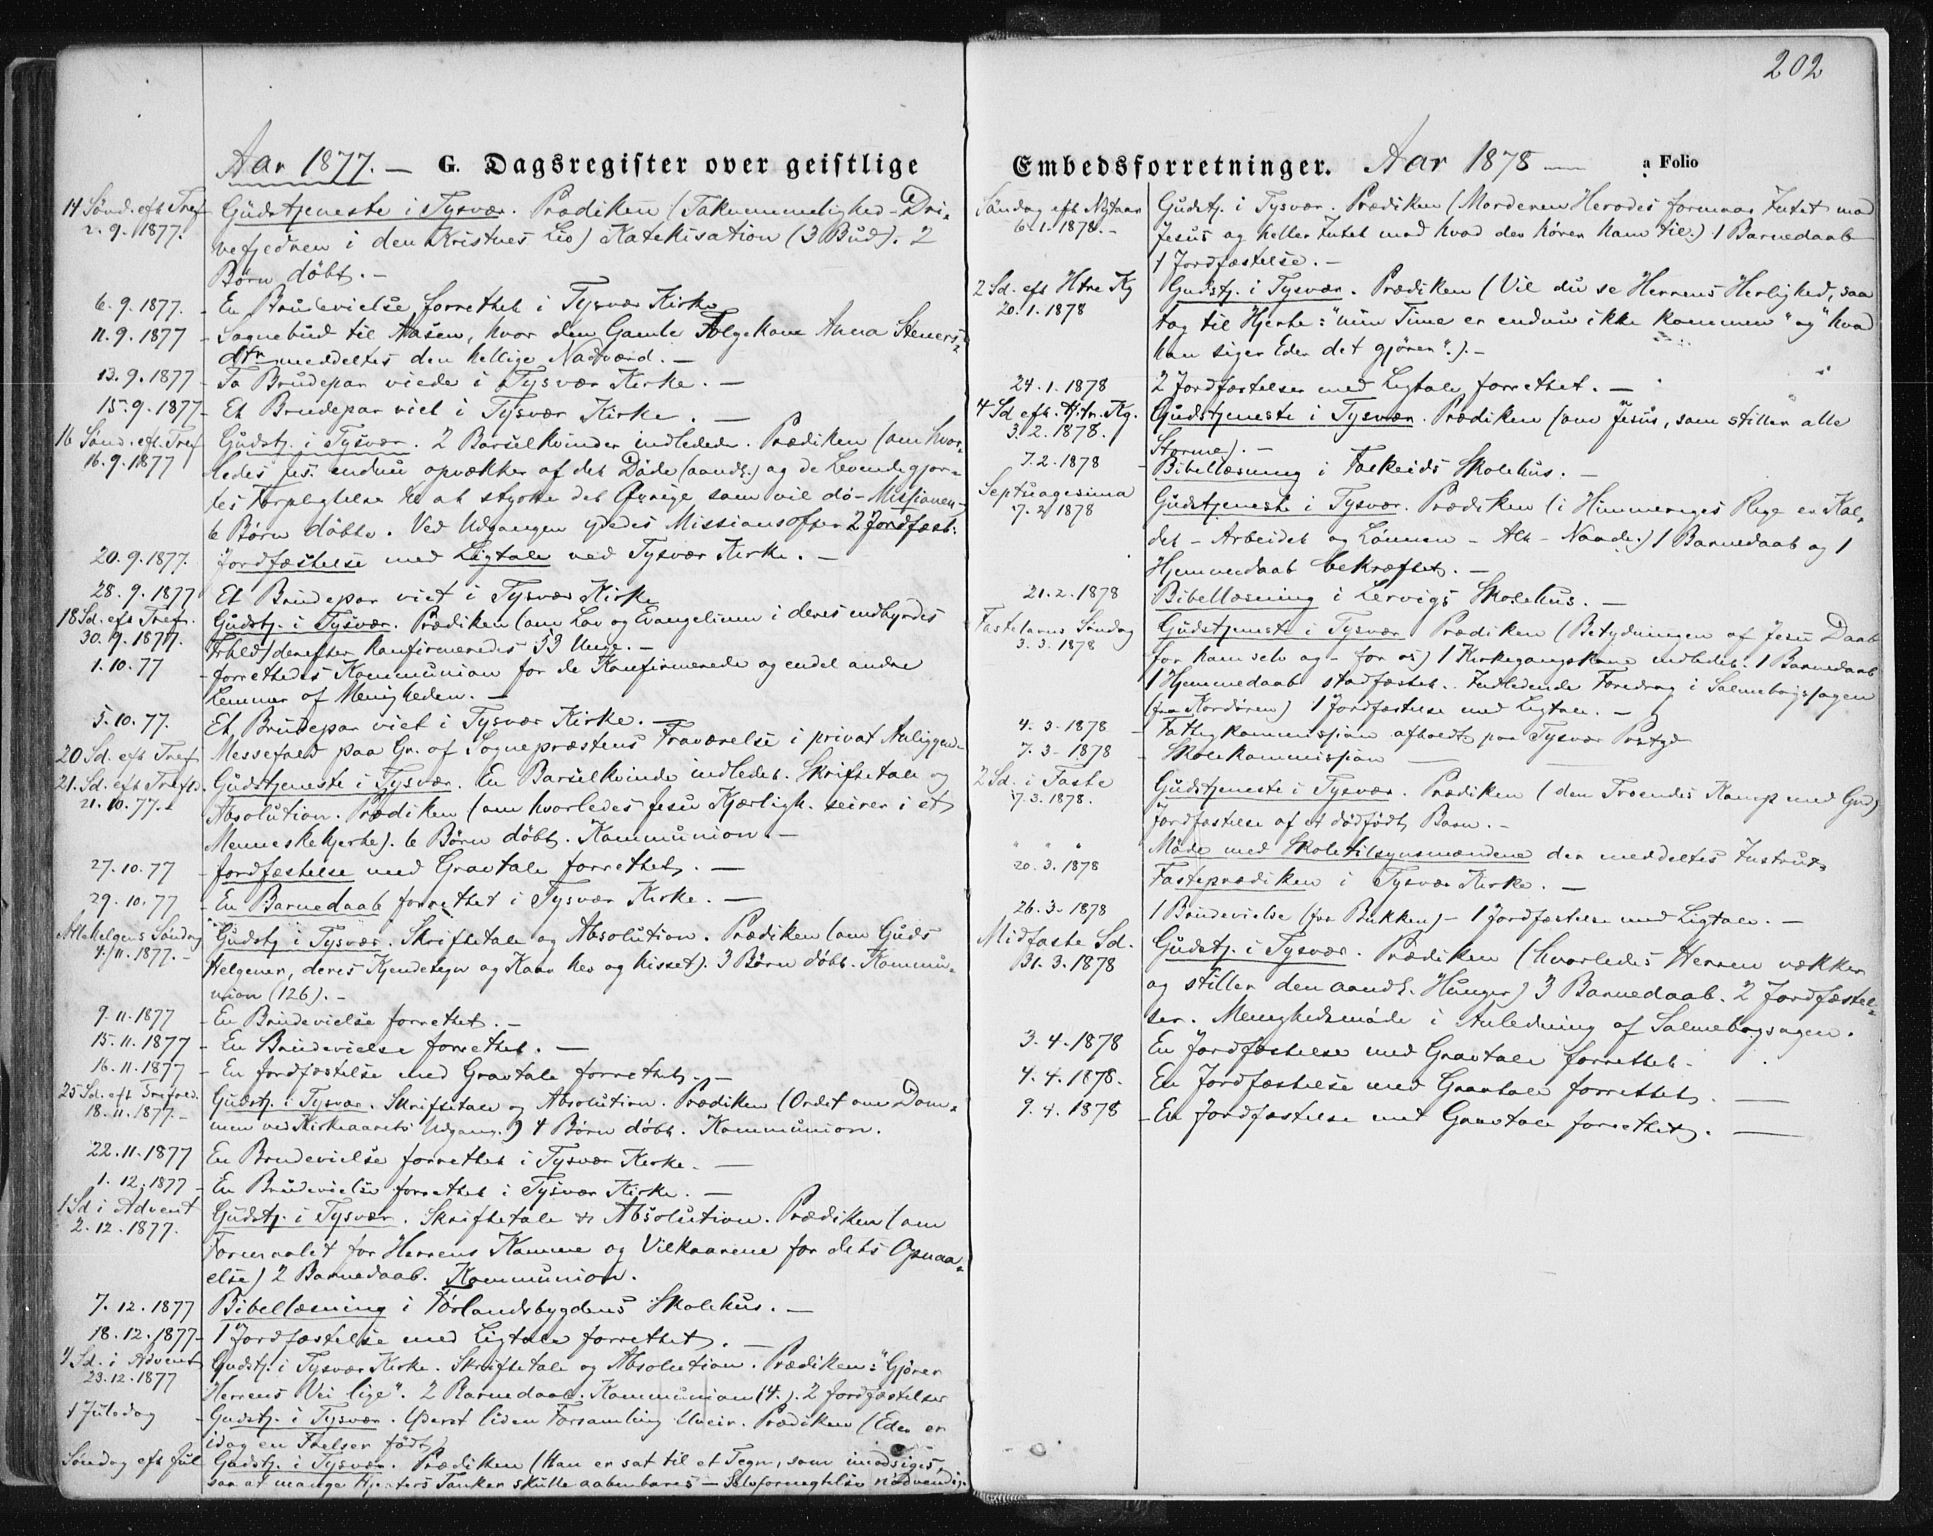 202
Aar 1877. — G. Dagsregister over geistlige
14 Sønd. eft Tref. Gudstjeneste i Tysvær. Prædiken (Taknemmelighed – Dri-
2. 9. 1877. vefjedren i den Kristnes Liv) Katekisation (3 Bud). 2
Børn døbt. —
6. 9. 1877. - En Brudevielse forrettet i Tysvær Kirke
11. 9. 1877 - Sognebud til Aasen, hvor den Gamle Følgekone Anna Steners-
dtr meddeltes den hellige Nadverd. —
13. 9. 1877 - To Brudepar viede i Tysvær Kirke. —
15. 9. 1877 - Et Brudepar viet i Tysvær Kirke. —
16 Sønd. eft. Tref Gudstj. i Tysvær. 2 Barselkvinder indledede. Prædiken (om hvor-
16. 9. 1877 ledes Jes. endnu opvækker af det Døde (aandl.) og de Levendegjor-
tes Forpligtelse til at styrke det Øvrige som vil dø - Missionen -
6 Børn døbte. Ved Udgangen ydedes Missionsoffer 2 Jordfæst.
20. 9. 1877. Jordfæstelse med Ligtale ved Tysvær Kirke. —
28. 9. 1877 Et Brudepar viet i Tysvær Kirke
18 Sd. eft Tref. Gudstj. i Tysvær. Prædiken (om Lov og Evangelium i deres indbyrdes
30. 9. 1877. Frhld) derefter konfirmeredes 53 Unge. —
1. 10. 77 - forrettedes Kommunion for de Konfirmerede og endel andre
Lemmer af Menigheden. —
5. 10. 77. Et Brudepar viet i Tysvær Kirke. —
20 Sd. eft Tref Messefald paa Gr. af Sognepræstens Fraværelse i privat Anliggend-
21. Sd. eft Trefd. Gudstjeneste i Tysvær. En Barselkvinde indledet. Skriftetale og
21. 10. 77. Absolution. Prædiken (om hvorledes Jesu Kjærligh. seirer i et
Menneskehjerte). 6 Børn døbt. Kommunion. —
27. 10. 77 - Jordfæstelse med Gravtale forrettet. —
29. 10. 77 - En Barnedaab forrettet i Tysvær Kirke. —
Allehelgens Søndag Gudstj. i Tysvær. Skriftetale og Absolution. Prædiken (om Guds
4. 11. 1877. - Helgener, deres Kjendetegn og Kaar her og hisset). 3 Børn døbt. Kommu-
nion (126). —
9. 11. 1877 - En Brudevielse forrettet. —
15. 11. 1877 - En Brudevielse forrettet. —
16. 11. 1877 - En Jordfæstelse med Gravtale forrettet. —
25 Sd. eft Trefold. Gudstj. i Tysvær. Skriftetale og Absolution. Prædiken (Ordet om Dom-
18. 11. 1877. - men ved Kirkeaarets Udgang.) 4 Børn døbt. Kommunion.
22. 11. 1877 En Brudevielse forrettet i Tysvær Kirke. —
1. 12. 1877 - En Brudevielse forrettet i Tysvær Kirke. —
1 Sd i Advent Gudstj. i Tysvær. Skriftetale & Absolution. Prædiken (om
2. 12. 1877. Formaalet for Herrens Komme og Vilkaarene for dets Opnaa-
else) 2 Barnedaab. Kommunion.
7. 12. 1877 Bibellæsning i Førlandsbygdens Skolehus. —
18. 12. 1877 - 1 Jordfæstelse med Ligtale forrettet. —
4 Sd. i Advent Gudstj. i Tysvær Kirke. Skriftetale og Absolution. Prædiken: "Gjører
23. 12. 1877 Herrens Vei lige". 2 Barnedaab. Kommunion (4.). 2 Jordfæstelser
1 Juledag - Gudstj. i Tysvær. Yderst liden Forsamling Uveir. Prædiken (Eder er
idag en Frelser født)
Søndag eft Jul Gudstj. i Tysvær. Prædiken (Han er sat til et Tegn, som imodsiges,
saa at mange Hjerters Tanker skulle aabenbares — Selvfornegtelse nødvendig.
Embedsforretninger. Aar 1878 — a Folio
Søndag eft Nytaar Gudstj. i Tysvær. Prædiken (Morderen Herodes formaar Intet mod
6. 1. 1878. - Jesus og heller Intet mod hvad der hører ham til.) 1 Barnedaab
1 Jordfæstelse. —
2 Sd. eft Htre Kg Gudstj. i Tysvær. Prædiken (Vil du se Herrens Herlighed, saa
20. 1. 1878 tag til Hjerte: "min Time er endnu ikke kommen" og "hvad
han siger Eder det gjører".). —
24. 1. 1878 2 Jordfæstelser med Ligtale forrettet. —
4 Sd eft. H. tr. Kg. Gudstjeneste i Tysvær. Prædiken (om Jesus, som stiller alle
3. 2. 1878. Storme). —
7. 2. 1878 - Bibellæsning i Falkeids Skolehus. —
Septuagesima Gudstjeneste i Tysvær. Prædiken (i Himmeriges Rige er Kal-
17. 2 1878 det - Arbeidet og Lønnen - Alt - Naade.) 1 Barnedaab og 1
Hjemmedaab bekræftet. —
21. 2. 1878 Bibellæsning i Lervigs Skolehus. —
Fastelavns Søndag Gudstjeneste i Tysvær Prædiken (Betydningen af Jesu Daab
3. 3. 1878 for ham selv og - for os) 1 Kirkegangskone indledet. 1 Barnedaab
1 Hjemmedaab stadfæstet. Indledende Foredrag i Salmebogssagen
(fra Kordøren) 1 Jordfæstelse med Ligtale. —
4. 3. 1878 - Fattigkommission afholdt paa Tysvær Prstgd
7. 3. 1878 - Skolekommission —
2 Sd. i Faste Gudstjeneste i Tysvær. Prædiken (den Troendes Kamp med Gud)
17. 3. 1878. Jordfæstelse af et dødfødt Barn. —
" " " Møde med Skoletilsynsmændene der meddeltes Instrux
20. 3. 1878 Fasteprædiken i Tysvær Kirke. —
26. 3. 1878 1 Brudevielse (fra Bukken) – 1 Jordfæstelse med Ligtale. —
Midfaste Sd. Gudstj. i Tysvær. Prædiken (hvorledes Herren vækker
31. 3. 1878 og stiller den aandl. Hunger) 3 Barnedaab. 2 Jordfæstel-
ser. Menighedsmøde i Anledning af Salmebogsagen.
3. 4. 1878 En Jordfæstelse med Gravtale forrettet.
4. 4. 1878. En Jordfæstelse med Gravtale forrettet. —
9. 4. 1878 - En Jordfæstelse met Gravtale forrettet. —